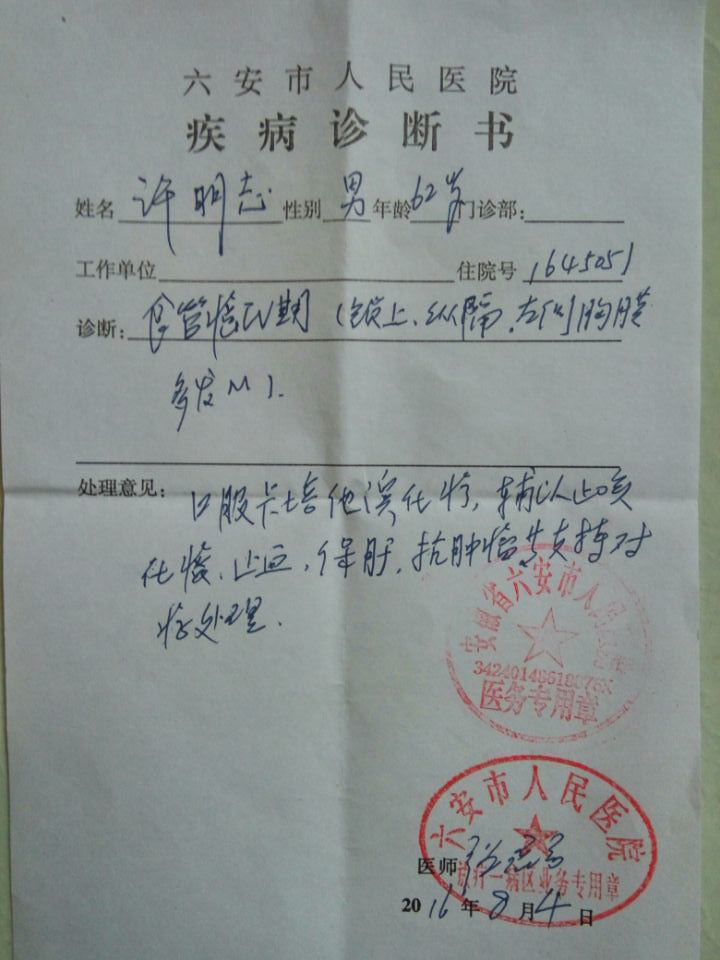 六安市人民医院
疾病诊断书
姓名 许明志 性别 男 年龄 62岁 门诊部:
工作单位 住院号 1645051
诊断: 食管癌IV期 (锁骨上、纵隔、左侧胸膜
多发M).
处理意见: 口服卡培他滨化疗, 辅以止咳
化痰、止血、保肝、抗肿瘤 支持对
症处理.
安徽省六安市人民
医务专用章
六安市人民医院
放疗一病区业务专用章
医师
2016年8月4日